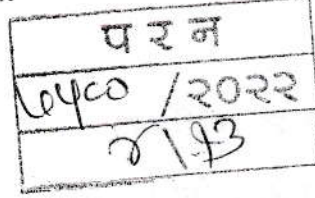 परन
७५८० /२०२२
४/१३